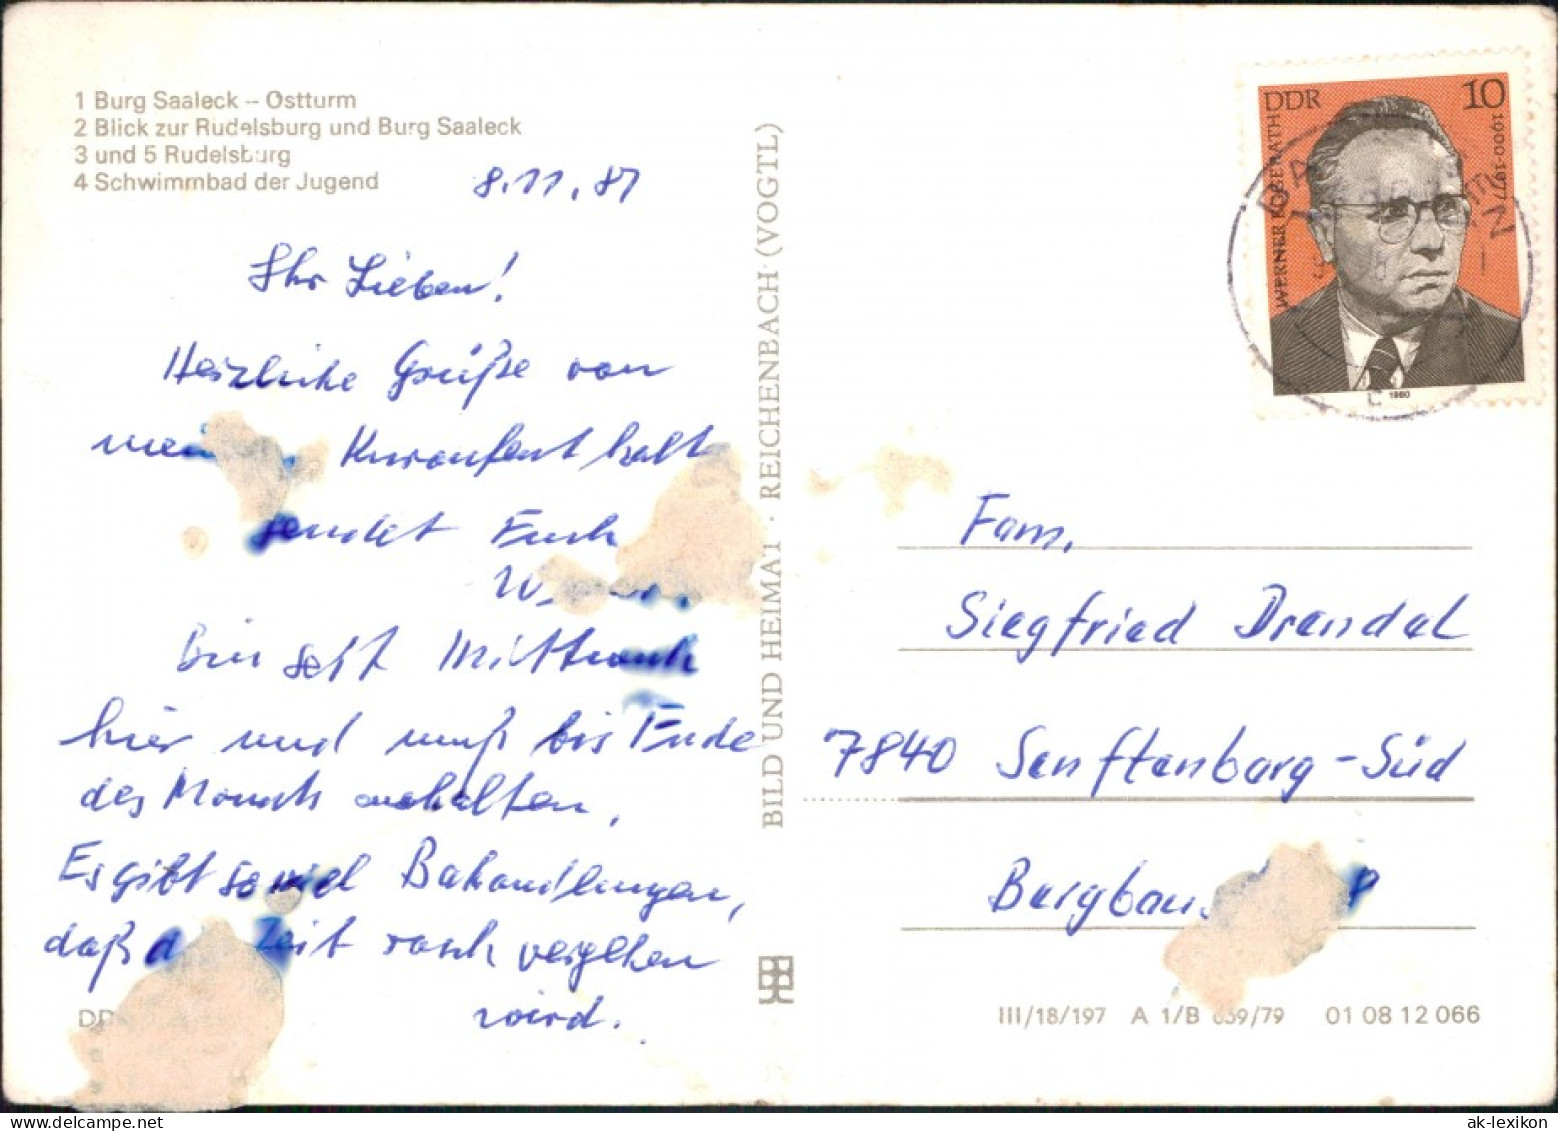 1 Burg Saaleck -- Ostturm
2 Blick zur Rudelsburg und Burg Saaleck
3 und 5 Rudelsburg
4 Schwimmbad der Jugend
8.11.81
Ihr Lieben!
Herzliche Grüße von
Kuraufenthalt
sendet Euch
Bin seit Mittwoch
hier und muß bis Ende
des Monats aushalten.
Es gibt so viel Behandlungen,
daß Zeit rasch vergehen
wird.
BILD UND HEIMAT · REICHENBACH (VOGTL)
DDR 10
WERNER EGGERATH 1900-1977
1980
Fam.
Siegfried Drendel
7840 Senftenberg-Süd
III/18/197 A 1/B 659/79 01 08 12 066
ak-lexikon